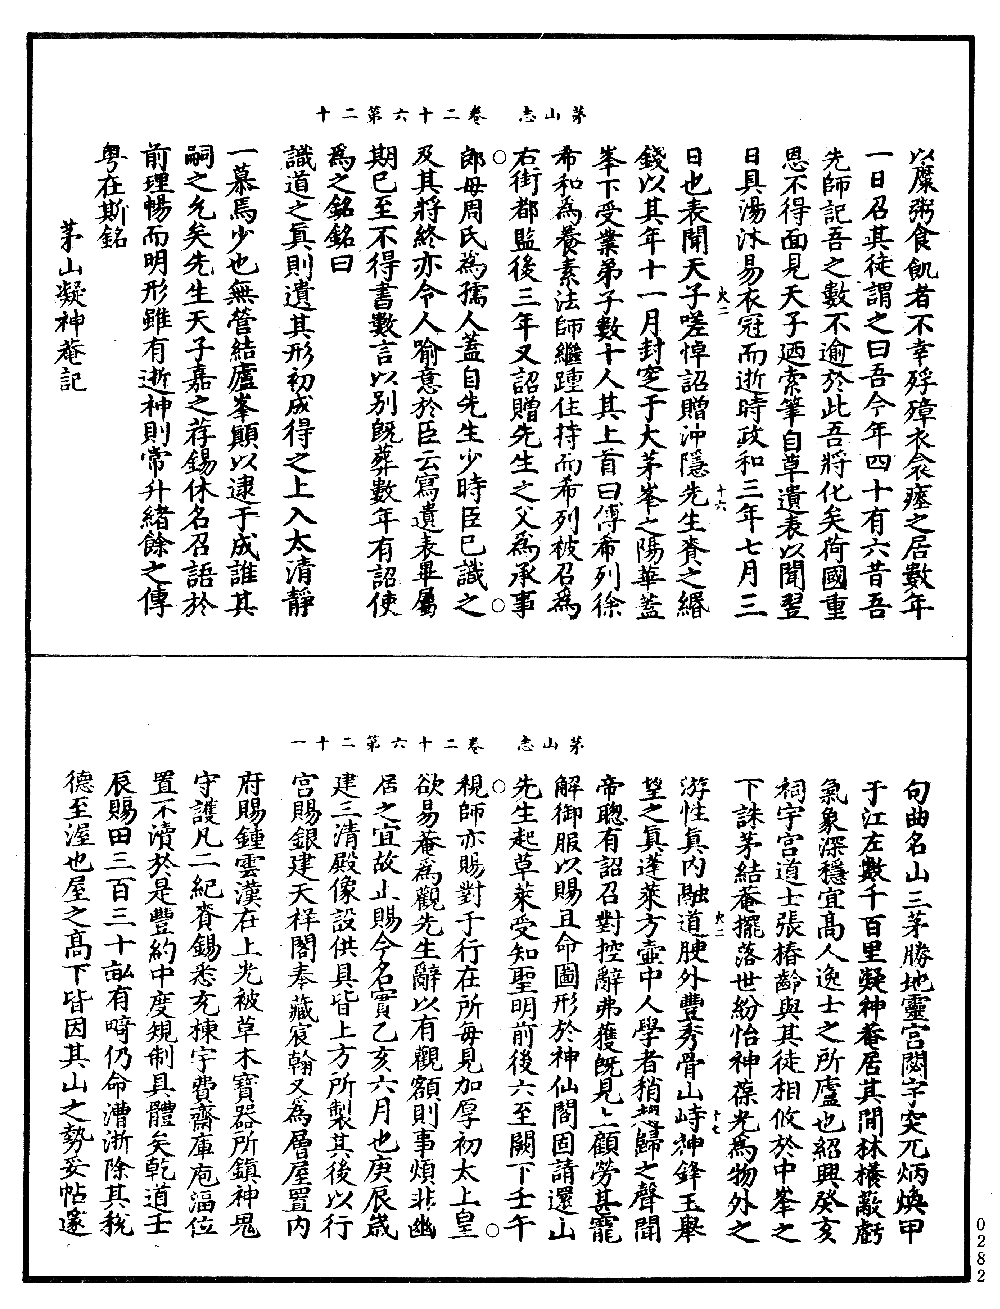 茅山志　卷二十六第二十
以糜粥食飢者不幸殍殣衣衾瘞之居數年
一日召其徒謂之曰吾今年四十有六昔吾
先師記吾之數不逾於此吾將化矣荷國重
恩不得面見天子迺索筆自草遺表以聞翌
日具湯沐易衣冠而逝時政和三年七月三
日也表聞天子嗟悼詔贈沖隱先生賚之緡
錢以其年十一月封窆于大茅峯之陽華蓋
峯下受業弟子數十人其上首曰傅希列徐
希和為養素法師繼踵住持而希列被召為
右街都監後三年又詔贈先生之父為承事
郎母周氏為孺人蓋自先生少時臣已識之
及其將終亦令人喻意於臣云寫遺表畢屬
期已至不得書數言以別既葬數年有詔使
為之銘銘曰
識道之真則遺其形初成得之上入太清靜
一慕焉少也無管結廬峯顛以逮于成誰其
嗣之允矣先生天子嘉之荐錫休名召語於
前理暢而明形雖有逝神則常升緒餘之傳
粵在斯銘
茅山凝神菴記
茅山志　卷二十六第二十一
句曲名山三茅勝地靈宮閟宇突兀炳煥甲
于江左數千百里凝神菴居其間林樾蔽虧
氣象深穩宜高人逸士之所廬也紹興癸亥
祠宇宮道士張椿齡與其徒相攸於中峯之
下誅茅結菴擺落世紛怡神葆光為物外之
游性真內融道腴外豐秀骨山峙神鋒玉舉
望之真蓬萊方壺中人學者稍趨歸之聲聞
帝聰有詔召對控辭弗獲既見上顧勞甚寵
解御服以賜且命圖形於神仙閣固請還山
先生起草萊受知聖明前後六至闕下壬午
視師亦賜對于行在所每見加厚初太上皇
欲易菴為觀先生辭以有觀額則事煩非幽
居之宜故止賜今名實乙亥六月也庚辰歲
建三清殿像設供具皆上方所製其後以行
宮賜銀建天祥閣奉藏宸翰又為層屋置內
府賜鍾雲漢在上光被草木寶器所鎮神鬼
守護凡二紀賚錫悉充棟宇費齋庫庖湢位
置不瀆於是豐約中度規制具體矣乾道壬
辰賜田三百三十畝有畸仍命漕浙除其稅
德至渥也屋之高下皆因其山之勢妥帖邃
火二
十六
火二
十七
0282